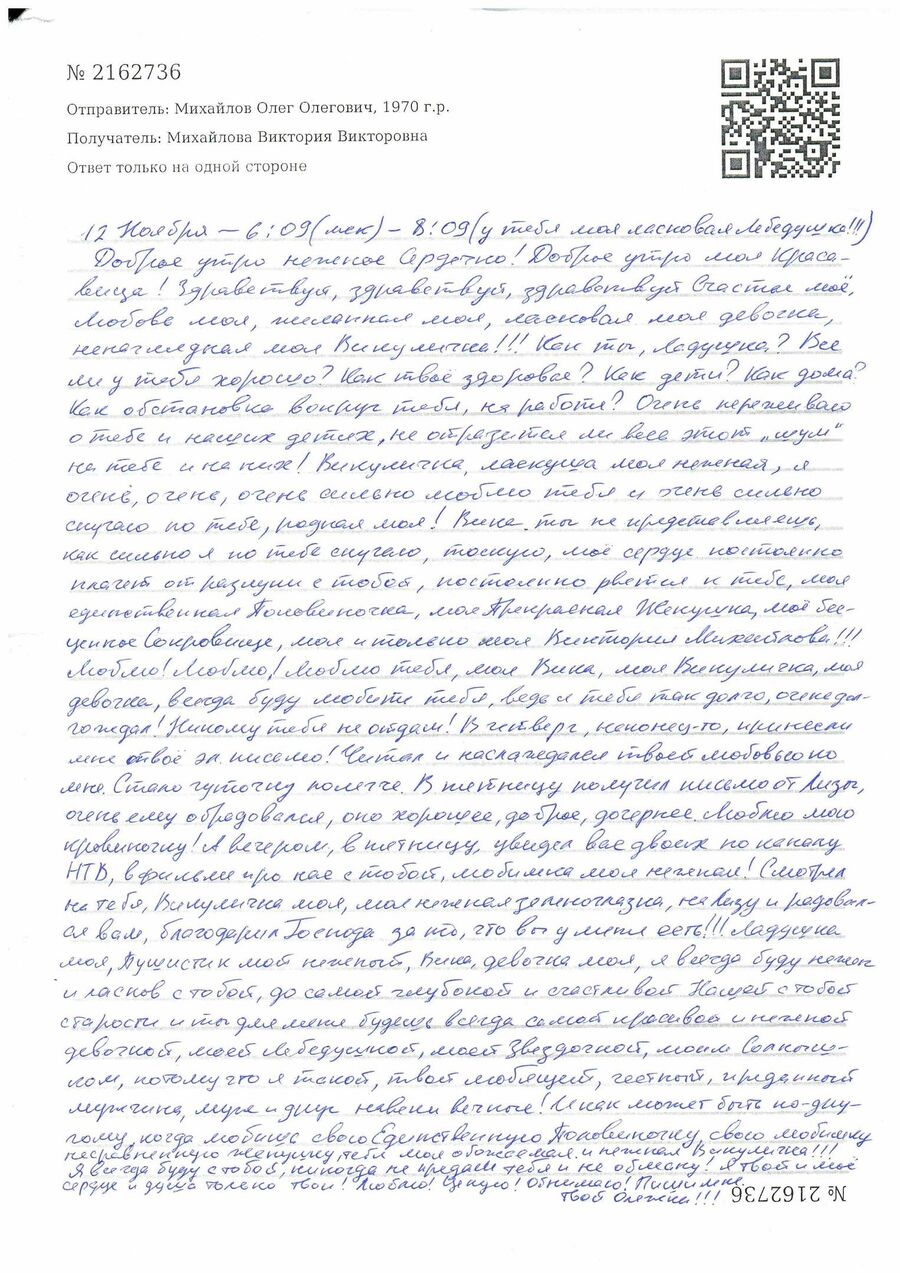 № 2162736
Отправитель: Михайлов Олег Олегович, 1970 г.р.
Получатель: Михайлова Виктория Викторовна
Ответ только на одной стороне
12 Ноября – 6:09 (мск) – 8:09 (у тебя моя ласковая Лебедушка!!!)
Доброе утро нежное Сердечко! Доброе утро моя Краса-
вица! Здравствуй, здравствуй, здравствуй Счастье моё,
Любовь моя, желанная моя, ласковая моя девочка,
ненаглядная моя Викуличка!!! Как ты, Ладушка? Все
ли у тебя хорошо? Как твоё здоровье? Как дети? Как дома?
Как обстановка вокруг тебя, на работе? Очень переживаю
о тебе и наших детях, не отразится ли весь этот „шум“
на тебе и на них! Викуличка, лакуша моя нежная, я
очень, очень, очень сильно люблю тебя и очень сильно
скучаю по тебе, родная моя! Вика ты не представляешь,
как сильно я по тебе скучаю, тоскую, моё сердце постоянно
плачет от разлуки с тобой, постоянно рвется к тебе, моя
единственная Половиночка, моя Прекрасная Женушка, моё бес-
ценное Сокровище, моя и только моя Виктория Михайлова!!!
Люблю! Люблю! Люблю тебя, моя Вика, моя Викуличка, моя
девочка, всегда буду любить тебя, ведь я тебя так долго, очень дол-
го ждал! Никому тебя не отдам! В четверг, наконец-то, принесли
мне твоё эл. письмо! Читал и наслаждался твоей любовью ко
мне. Стало чуточку полегче. В пятницу получил письмо от Лизы,
очень ему обрадовался, оно хорошее, доброе, дочернее. Люблю мою
кровиночку! А вечером, в пятницу, увидел вас двоих по каналу
НТВ, в фильме про нас с тобой, любимка моя нежная! Смотрел
на тебя, Викуличка моя, моя нежная зеленоглазка, на Лизу и радовал-
ся вам, благодарил Господа за то, что вы у меня есть!!! Ладушка
моя, Пушистик мой нежный, Вика, девочка моя, я всегда буду нежен
и ласков с тобой, до самой глубокой и счастливой Нашей с тобой
старости и ты для меня будешь всегда самой красивой и нежной
девочкой, моей Лебедушкой, моей Звездочкой, моим Солныш-
ком, потому что я такой, твой любящий, честный, преданный
мужчина, муж и друг навеки вечные! И как может быть по-дру-
гому, когда любишь свою Единственную Половиночку, свою любимку
несравненную женушку, тебя моя обожаемая и нежная Викуличка!!!
Я всегда буду с тобой, никогда не предам тебя и не обману! Я Твой и моё
сердце и душа только твои! Люблю! Целую! Обнимаю! Пиши мне.
Твой Олежка!!!
№ 2162736